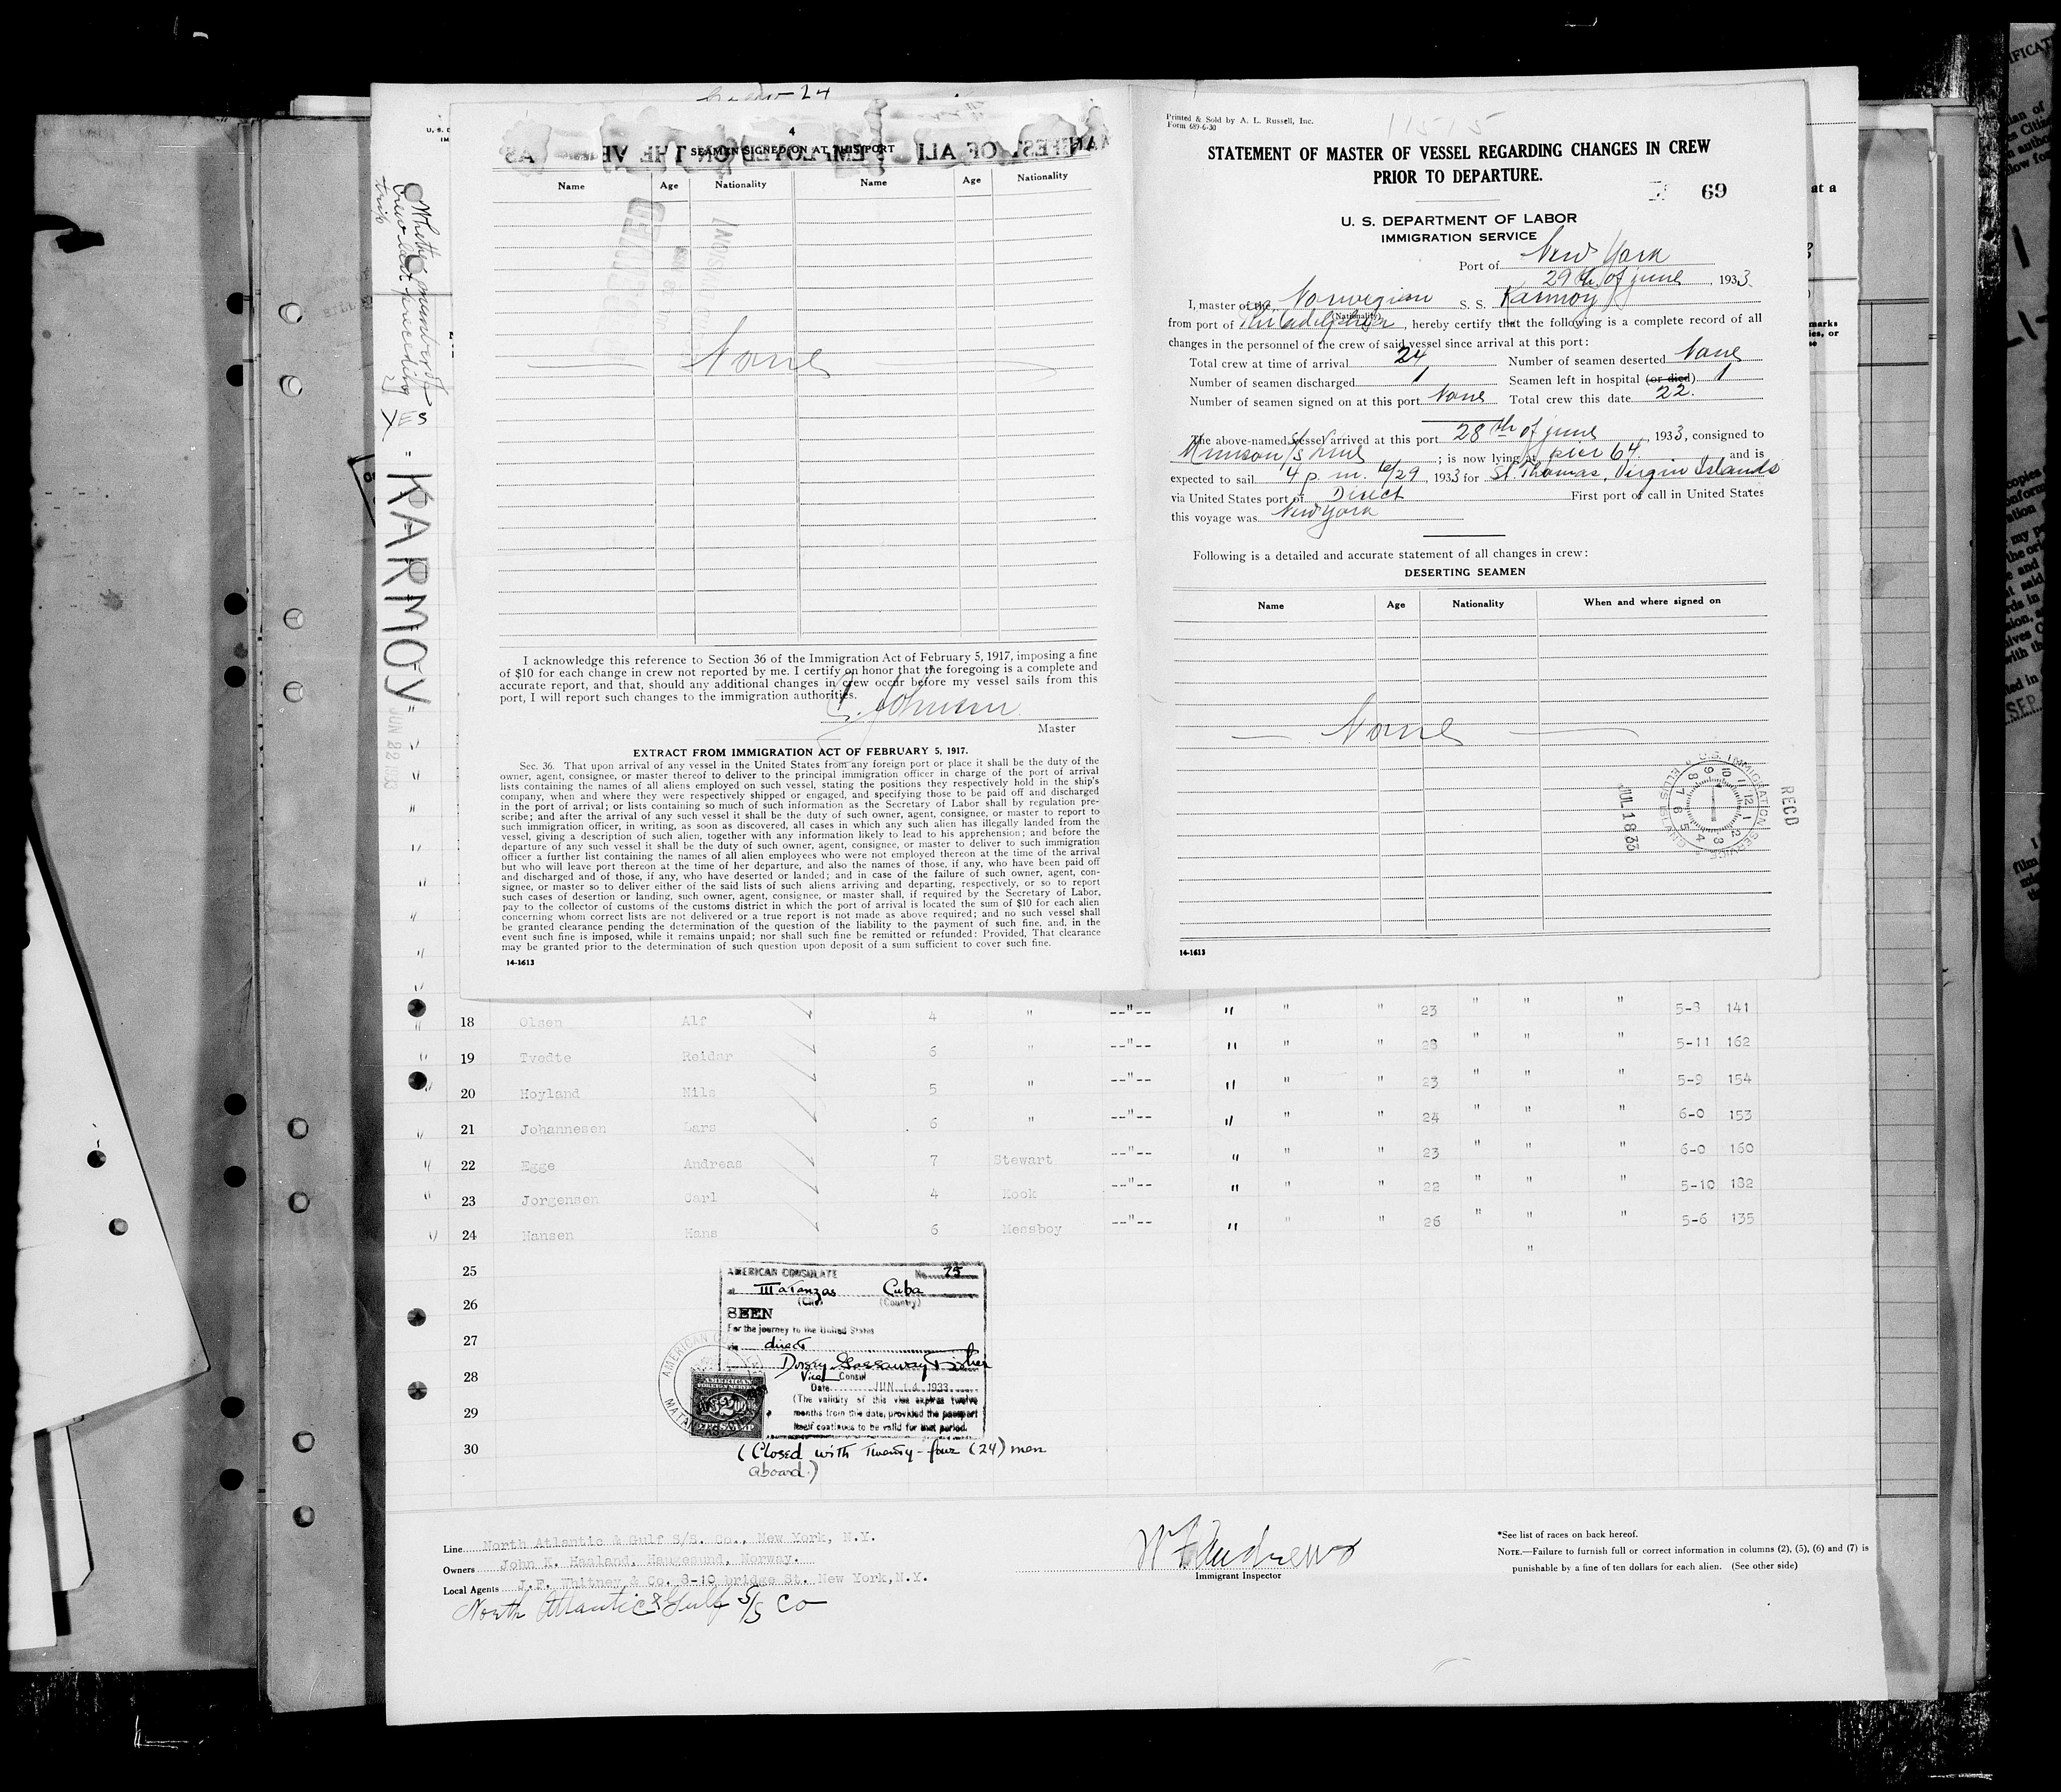 4
SEAMEN SIGNED ON AT THIS PORT
Name Age Nationality Name Age Nationality
None
I acknowledge this reference to Section 36 of the Immigration Act of February 5, 1917, imposing a fine
of $10 for each change in crew not reported by me. I certify on honor that the foregoing is a complete and
accurate report, and that, should any additional changes in crew occur before my vessel sails from this
port, I will report such changes to the immigration authorities.
Johnsen
Master
EXTRACT FROM IMMIGRATION ACT OF FEBRUARY 5, 1917.
Sec. 36. That upon arrival of any vessel in the United States from any foreign port or place it shall be the duty of the
owner, agent, consignee, or master thereof to deliver to the principal immigration officer in charge of the port of arrival
lists containing the names of all aliens employed on such vessel, stating the positions they respectively hold in the ship's
company, when and where they were respectively shipped or engaged, and specifying those to be paid off and discharged
in the port of arrival; or lists containing so much of such information as the Secretary of Labor shall by regulation pre-
scribe; and after the arrival of any such vessel it shall be the duty of such owner, agent, consignee, or master to report to
such immigration officer, in writing, as soon as discovered, all cases in which any such alien has illegally landed from the
vessel, giving a description of such alien, together with any information likely to lead to his apprehension; and before the
departure of any such vessel it shall be the duty of such owner, agent, consignee, or master to deliver to such immigration
officer a further list containing the names of all alien employees who were not employed thereon at the time of the arrival
but who will leave port thereon at the time of her departure, and also the names of those, if any, who have been paid off
and discharged and of those, if any, who have deserted or landed; and in case of the failure of such owner, agent, con-
signee, or master so to deliver either of the said lists of such aliens arriving and departing, respectively, or so to report
such cases of desertion or landing, such owner, agent, consignee, or master shall, if required by the Secretary of Labor,
pay to the collector of customs of the customs district in which the port of arrival is located the sum of $10 for each alien
concerning whom correct lists are not delivered or a true report is not made as above required; and no such vessel shall
be granted clearance pending the determination of the question of the liability to the payment of such fine, and, in the
event such fine is imposed, while it remains unpaid; nor shall such fine be remitted or refunded: Provided, That clearance
may be granted prior to the determination of such question upon deposit of a sum sufficient to cover such fine.
14-1613
Printed & Sold by A. L. Russell, Inc.
Form 689-6-30
11515
STATEMENT OF MASTER OF VESSEL REGARDING CHANGES IN CREW
PRIOR TO DEPARTURE.
69
U. S. DEPARTMENT OF LABOR
IMMIGRATION SERVICE
Port of New York
29th of june, 1933
I, master of the Norwegian S. S. Karmoy
(Nationality)
from port of Philadelphia, hereby certify that the following is a complete record of all
changes in the personnel of the crew of said vessel since arrival at this port:
Total crew at time of arrival 24 Number of seamen deserted None
Number of seamen discharged 1 Seamen left in hospital (or died) 1
Number of seamen signed on at this port None Total crew this date 22.
The above-named vessel arrived at this port 28th of june, 1933, consigned to
Munson S/S Line; is now lying at pier 64 and is
expected to sail 4 p. m. 6/29, 1933 for St. Thomas, Virgin Islands
via United States port of Direct First port of call in United States
this voyage was New York
Following is a detailed and accurate statement of all changes in crew:
DESERTING SEAMEN
Name Age Nationality When and where signed on
None
REC'D
U. S. IMMIGRATION SERVICE
ELLIS ISLE
JUL 1 8 33
14-1613
KARMOY
JUN 22 1933
18 Olsen Alf 4 " --"-- " " " 23 " " " 5-8 141
19 Tvedte Reidar 6 " --"-- " " " 28 " " " 5-11 162
20 Hoyland Nils 5 " --"-- " " " 23 " " " 5-9 154
21 Johannesen Lars 6 " --"-- " " " 24 " " " 6-0 153
22 Egge Andreas 7 Stewart --"-- " " " 23 " " " 6-0 160
23 Jorgensen Carl 4 Kook --"-- " " " 22 " " " 5-10 182
24 Hansen Hans 6 Messboy --"-- " " " 26 " " " 5-6 135
25
26
27
28
29
30
AMERICAN CONSULATE No. 75
at Matanzas Cuba
(City) (Country)
SEEN
For the journey to the United States
via direct
Dorsey Gassaway Fisher
Vice Consul
Date JUN 14 1933
(The validity of this visa expires twelve
months from this date, provided the passport
itself continues to be valid for that period.
AMERICAN
FOREIGN SERVICE
$2
(Closed with Twenty-four (24) men
aboard.)
Line North Atlantic & Gulf S/S. Co., New York, N.Y.
Owners John K. Haaland, Haugesund, Norway.
Local Agents J.F. Whitney & Co. 8-10 bridge St. New York, N.Y.
North Atlantic & Gulf S/S Co
W F Andrews
Immigrant Inspector
*See list of races on back hereof.
NOTE.—Failure to furnish full or correct information in columns (2), (5), (6) and (7) is
punishable by a fine of ten dollars for each alien. (See other side)